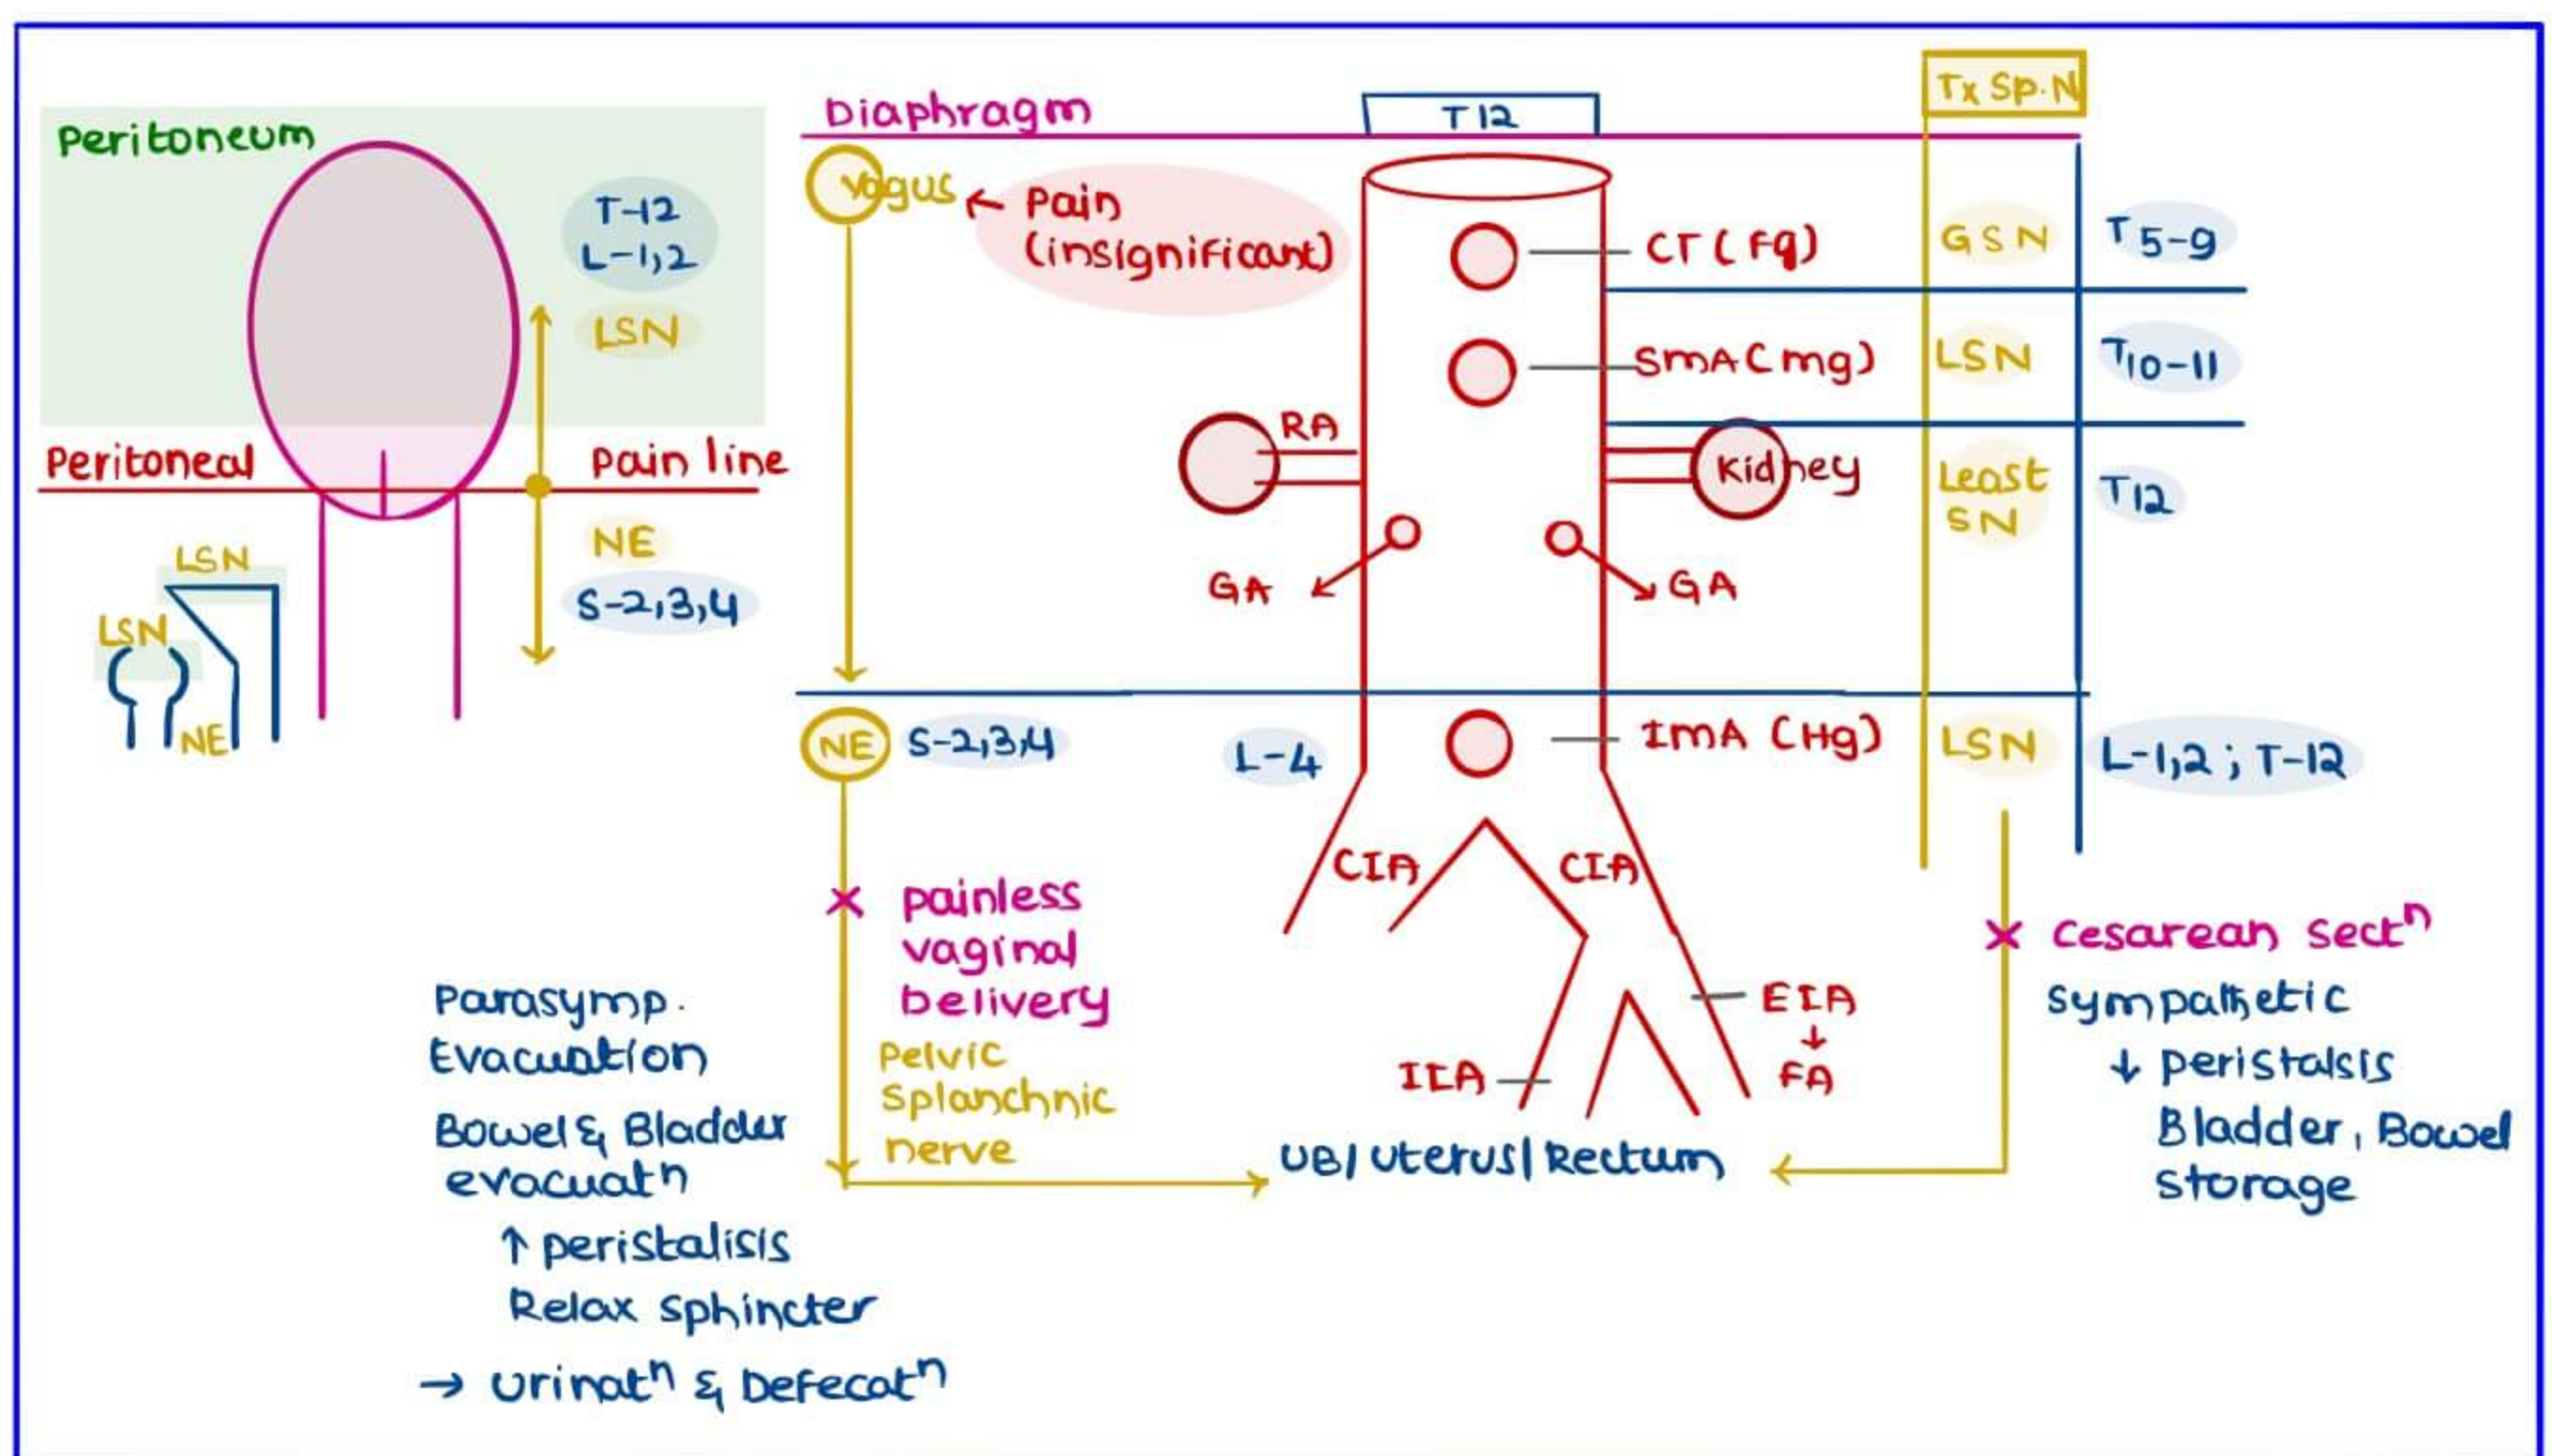 Peritoneum
T-12
L-1,2
LSN
Peritoneal
Pain line
NE
S-2,3,4
LSN
LSN
NE
Diaphragm
T12
Tx Sp.N
Vagus
← Pain
(insignificant)
CT (Fg)
GSN
T5-9
SMA (mg)
LSN
T10-11
RA
Kidney
Least
SN
T12
GA
GA
NE
S-2,3,4
L-4
IMA (Hg)
LSN
L-1,2 ; T-12
CIA
CIA
× painless
vaginal
Delivery
Pelvic
Splanchnic
nerve
EIA
↓
FA
IIA
UB/ Uterus/ Rectum
× Cesarean Sectⁿ
Sympathetic
↓ Peristalsis
Bladder, Bowel
Storage
Parasymp.
Evacuation
Bowel & Bladder
evacuatⁿ
↑ peristalisis
Relax Sphincter
→ Urinatⁿ & Defecatⁿ